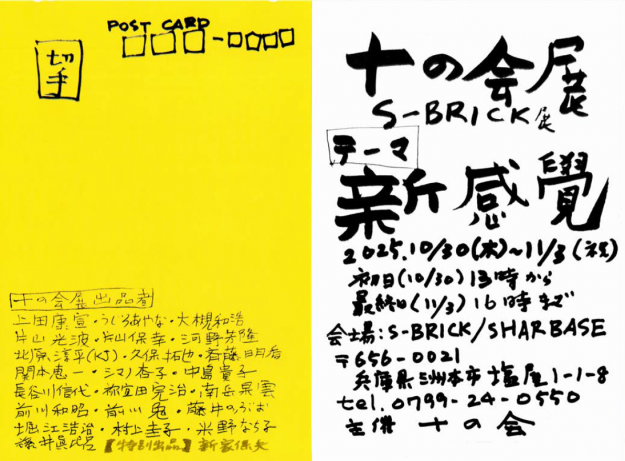 POST CARD
切手
十の会展出品者
上田康宣・うしろあやな・大槻和浩
片山光波・片山保幸・河野芳隆
北原淳平(KJ)・久保拓也・斉藤日明香
関本恵一・シマノ杏子・中島貴子
長谷川信代・祢宜田完治・南岳杲雲
前川和昭・前川兎・藤井のぶお
堀江浩治・村上圭子・米野なら子
【特別出品】新家保矢
十の会展
S-BRICK展
テーマ
新感覺
2025.10/30(木)~11/3(祝)
初日(10/30)13時から
最終日(11/3)16時まで
会場:S-BRICK/SHARBASE
〒656-0021
兵庫県洲本市塩屋1-1-8
tel.0799-24-0550
主催 十の会